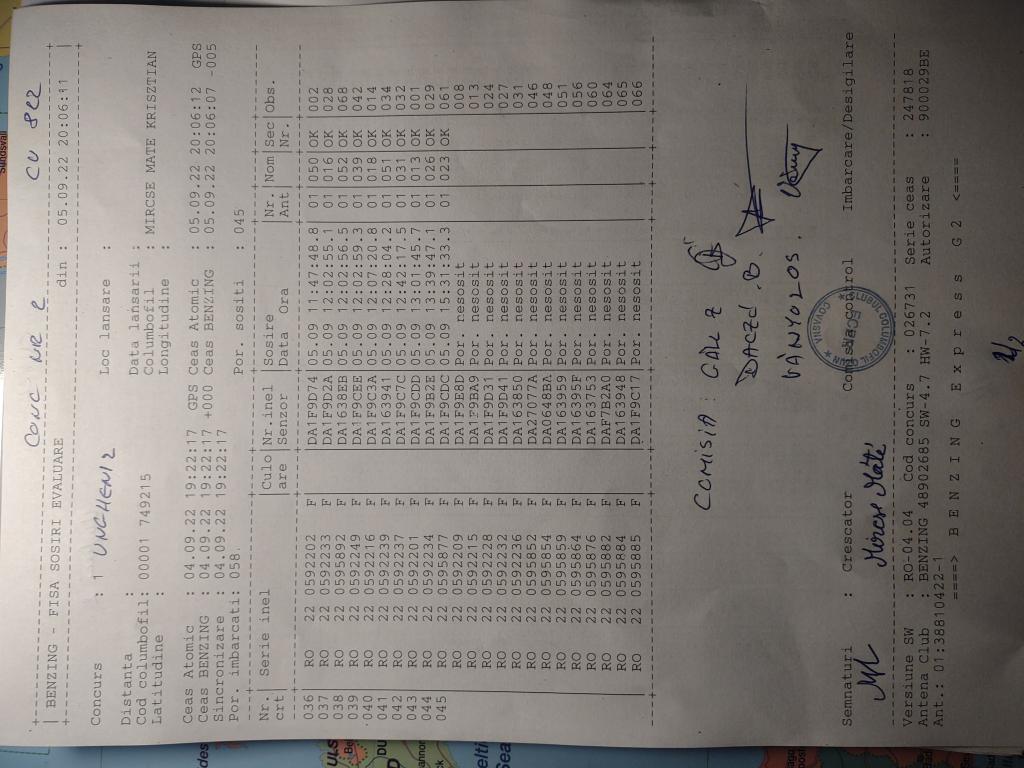 CONC NR 2 CU 822
BENZING - FISA SOSIRI EVALUARE din : 05.09.22 20:06:11
Concurs : 1 UNGHENI 2 Loc lansare :
Distanta : Data lansarii:
Cod columbofil: 00001 749215 Columbofil : MIRCSE MATE KRISZTIAN
Latitudine : Longitudine :
Ceas Atomic : 04.09.22 19:22:17 GPS Ceas Atomic : 05.09.22 20:06:12 GPS
Ceas BENZING : 04.09.22 19:22:17 +000 Ceas BENZING : 05.09.22 20:06:07 -005
Sincronizare : 04.09.22 19:22:17
Por. imbarcati: 058 Por. sositi : 045
Nr.| Serie inel |Culo|Nr.inel |Sosire |Nr |Nom|Sec|Obs.
crt| |are |Senzor |Data Ora |Ant| |Nr.|
036 RO 22 0592202 F DA1F9D74 05.09 11:47:48.8 01 050 OK 002
037 RO 22 0592233 F DA1F9D2A 05.09 12:02:55.1 01 016 OK 028
038 RO 22 0595892 F DA1638EB 05.09 12:02:56.5 01 052 OK 068
039 RO 22 0592249 F DA1F9CEE 05.09 12:02:59.3 01 039 OK 042
040 RO 22 0592216 F DA1F9C3A 05.09 12:07:20.8 01 018 OK 014
041 RO 22 0592239 F DA163941 05.09 12:28:04.2 01 051 OK 034
042 RO 22 0592237 F DA1F9C7C 05.09 12:42:17.5 01 031 OK 032
043 RO 22 0592201 F DA1F9CDD 05.09 13:01:45.7 01 013 OK 001
044 RO 22 0592234 F DA1F9B2E 05.09 13:39:47.1 01 026 OK 029
045 RO 22 0595877 F DA1F9CDC 05.09 15:31:33.3 01 023 OK 061
RO 22 0592209 F DA1F9E8D Por. nesosit 008
RO 22 0592215 F DA1F9BA9 Por. nesosit 013
RO 22 0592228 F DA1F9D31 Por. nesosit 024
RO 22 0592232 F DA1F9D41 Por. nesosit 027
RO 22 0592236 F DA163850 Por. nesosit 031
RO 22 0595852 F DA27077A Por. nesosit 046
RO 22 0595854 F DA0648BA Por. nesosit 048
RO 22 0595859 F DA163959 Por. nesosit 051
RO 22 0595864 F DA16395F Por. nesosit 056
RO 22 0595876 F DA163753 Por. nesosit 060
RO 22 0595882 F DAF7B2A0 Por. nesosit 064
RO 22 0595884 F DA163948 Por. nesosit 065
RO 22 0595885 F DA1F9C17 Por. nesosit 066
COMISIA : GÁL Z
DACZO .B.
VÁNYOLOS.
Semnaturi : Crescator Comisia control Imbarcare/Desigilare
Mircse Máté
CLUBUL COLUMBOFIL COVASNA
Versiune SW : RO-04.04 Cod concurs : 026731 Serie ceas : 247818
Antena Club : BENZING 48902685 SW-4.7 HW-7.2 Autorizare : 900029BE
Ant.: 01:38810422-1
====> B E N Z I N G E x p r e s s G 2 <====
2/2